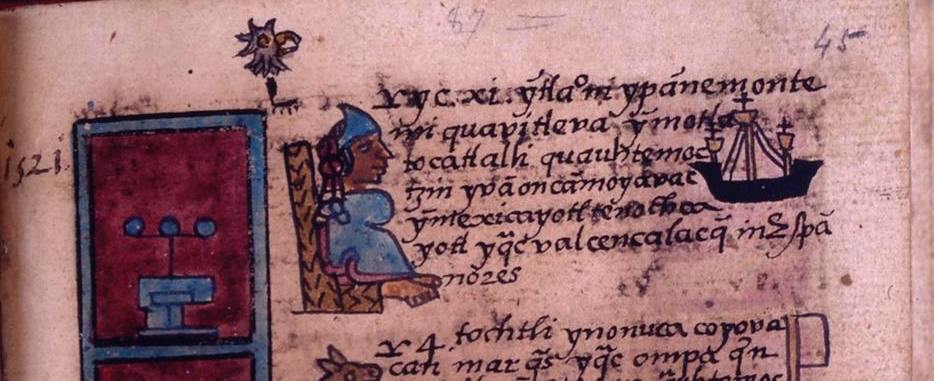 87
45
1521.
yyc. xi. ỹtlaº ni ypānemonte
mi quavitleva ỹmotla
tocatlalli quauhtemoc
tzin yvā oncā moyavac
ỹmexicayotl tenochca
yotl yq̄c valcencalacq̄ in spā
nōres
4 tochtli ynonuca coyova
can mar q̄s yq̄c ompa q̄n